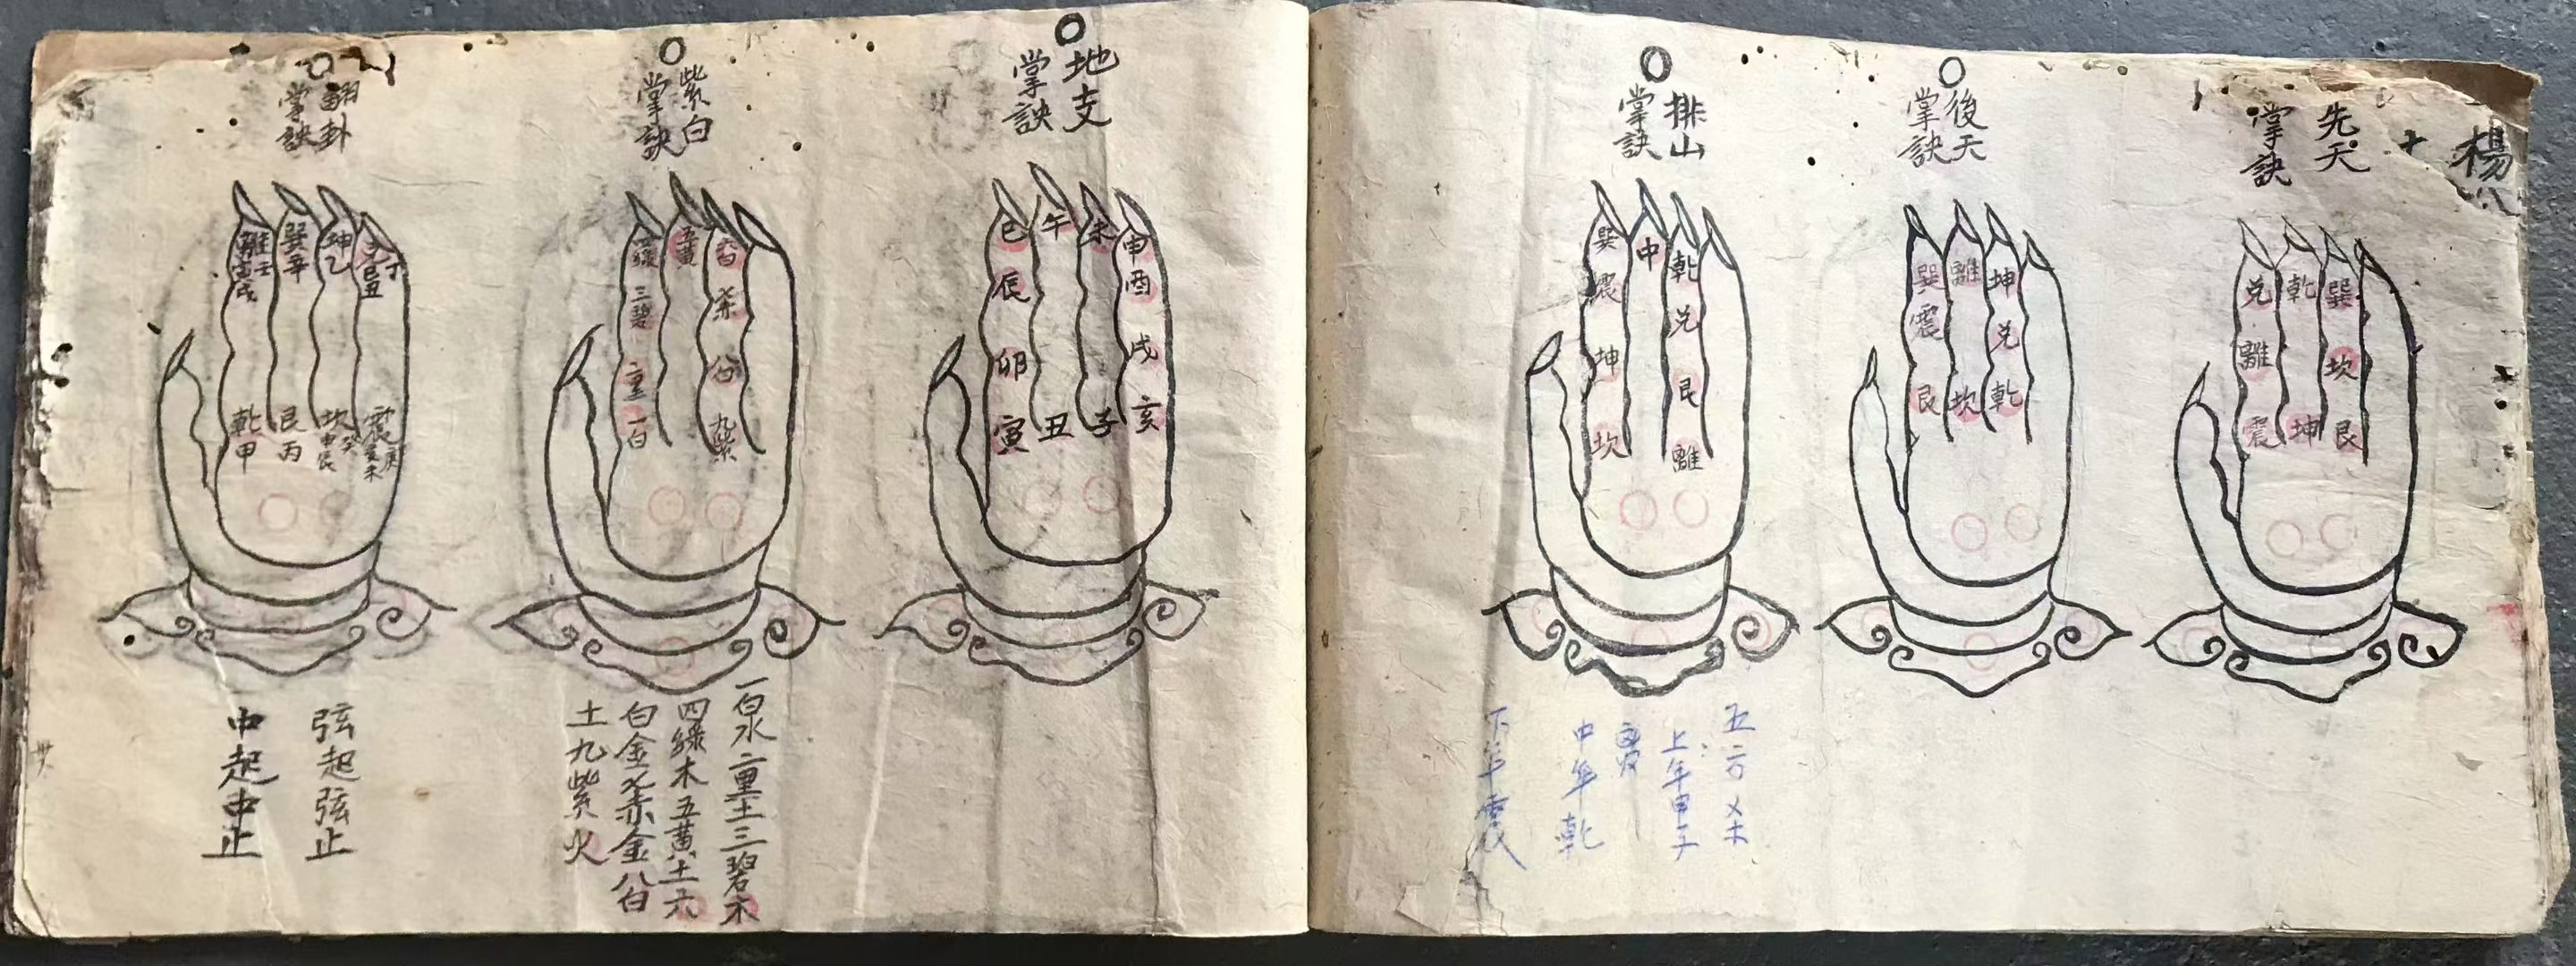 楊
先天
掌訣
兌
離
震
乾
坤
巽
坎
艮
後天
掌訣
巽
震
艮
離
坎
坤
兌
乾
排山
掌訣
巽
震
坤
坎
中
乾
兌
艮
離
上年甲子
中年乾
地支
掌訣
巳
辰
卯
寅
午
丑
未
子
申
酉
戌
亥
紫白
掌訣
四綠
三碧
二黑
一白
五黃
六白
七赤
八白
九紫
一白水二黑土三碧木
四綠木五黃土六
白金七赤金八白
土九紫火
翻卦
掌訣
離壬寅戌
乾甲
巽辛
艮丙
坤乙
坎癸申辰
兌丁巳丑
震庚亥未
弦起弦止
中起中止